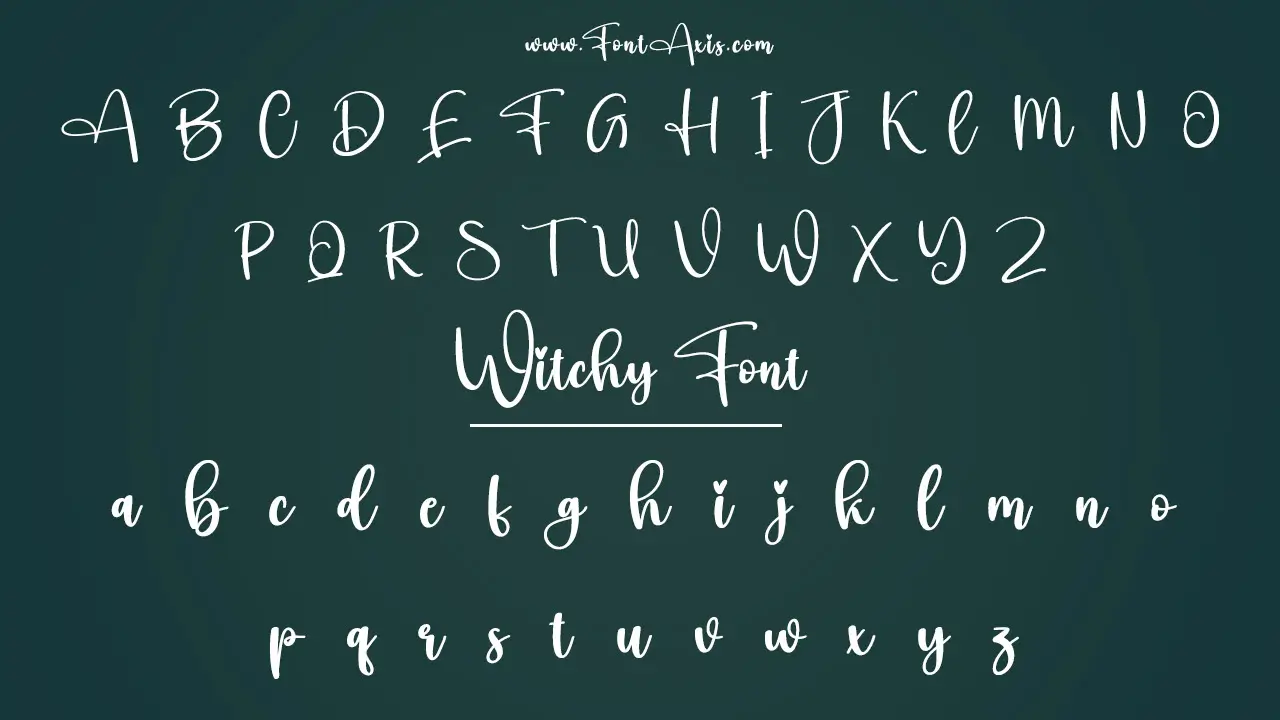 www.FontAxis.com
A B C D E F G H I J K L M N O
P Q R S T U V W X Y Z
Witchy Font
a b c d e f g h i j k l m n o
p q r s t u v w x y z